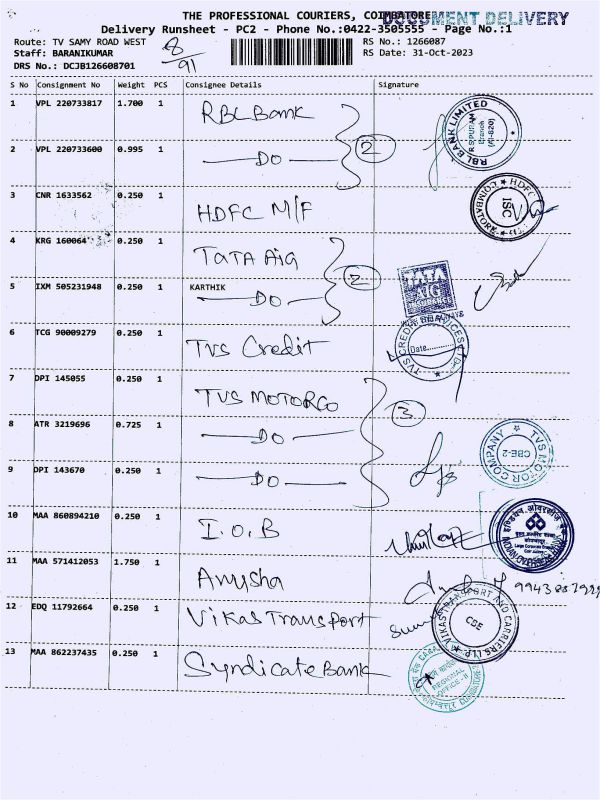 THE PROFESSIONAL COURIERS, COIMBATORE
DOCUMENT DELIVERY
Delivery Runsheet - PC2 - Phone No.:0422-3505555 - Page No.:1
Route: TV SAMY ROAD WEST
8/91
RS No.: 1266087
Staff: BARANIKUMAR
RS Date: 31-Oct-2023
DRS No.: DCJB126608701
S No Consignment No Weight PCS Consignee Details Signature
1 VPL 220733817 1.700 1 RBL Bank
RBL BANK LIMITED
R S PURAM
Branch
2 VPL 220733600 0.995 1 DO
2
3 CNR 1633562 0.250 1 HDFC M/F
HDFC
ISC
COIMBATORE
4 KRG 160064 0.250 1 TATA AIG
TATA
AIG
INSURANCE
5 IXM 505231948 0.250 1 KARTHIK
DO
2
6 TCG 90009279 0.250 1 TVS Credit
TVS CREDIT SERVICES LTD
Date
7 DPI 145055 0.250 1 TVS MOTORCO
3
8 ATR 3219696 0.725 1 DO
TVS MOTOR COMPANY
CBE-2
9 DPI 143670 0.250 1 DO
10 MAA 860894210 0.250 1 I.O.B
इण्डियन ओवरसीज़ बैंक
INDIAN OVERSEAS BANK
11 MAA 571412053 1.750 1 Anusha
12 EDQ 11792664 0.250 1 Vikas Transport
VIKAS TRANSPORT AND CARRIERS LLP
CBE
13 MAA 862237435 0.250 1 Syndicate Bank
REGIONAL
OFFICE-II